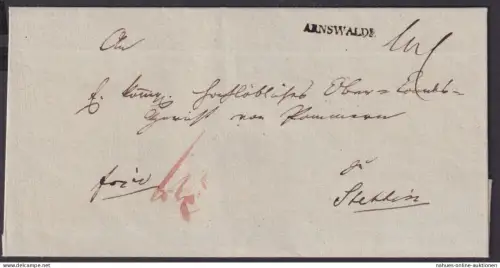 ARNSWALDE
An
E. königl. Hochlöbliches Ober-Landes-
Gericht von Pommern
zu
frei
Stettin
delcampe.net
nahues-online-auktionen